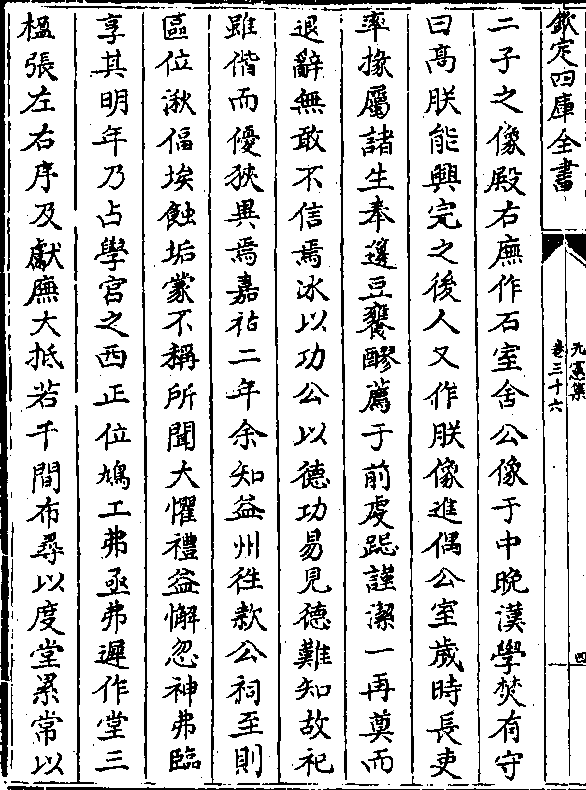 欽定四庫全書
元憲集
卷三十六
四
二子之像殿右廡作石室舍公像于中晚漢學焚有守
曰髙朕能興完之後人又作朕像進偶公室歲時長吏
率掾屬諸生奉籩豆饔醪薦于前䖍跽謹潔一再奠而
退辭無敢不信焉冰以功公以德功易見德難知故祀
雖偕而優狹異焉嘉祐二年余知益州徃款公祠至則
區位湫偪埃蝕垢蒙不稱所聞大懼禮益懈忽神弗臨
享其明年乃占學宫之西正位鳩工弗亟弗遲作堂三
楹張左右序及獻廡大抵若干間布尋以度堂累常以